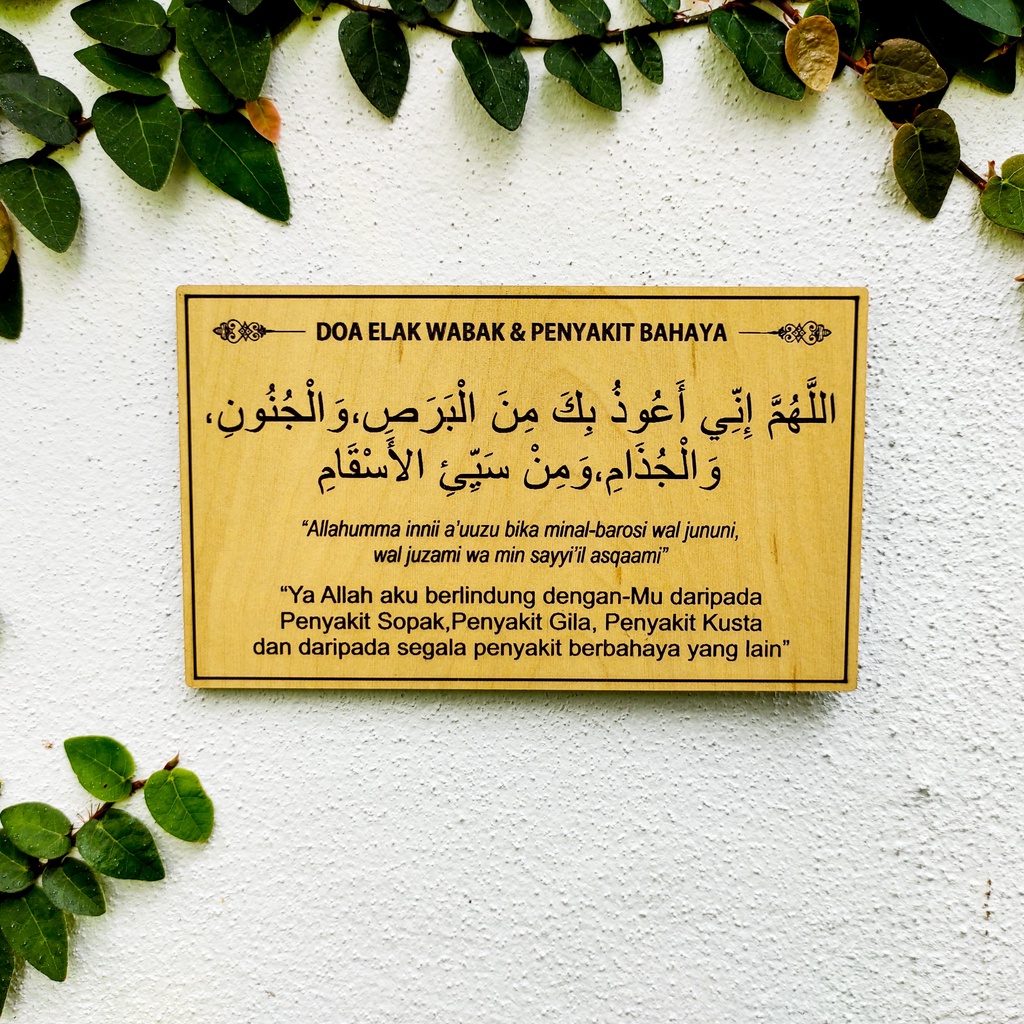 DOA ELAK WABAK & PENYAKIT BAHAYA
اللَّهُمَّ إِنِّي أَعُوذُ بِكَ مِنَ الْبَرَصِ،وَالْجُنُونِ،
وَالْجُذَامِ،وَمِنْ سَيِّئِ الأَسْقَامِ
“Allahumma innii a’uuzu bika minal-barosi wal jununi,
wal juzami wa min sayyi’il asqaami”
“Ya Allah aku berlindung dengan-Mu daripada
Penyakit Sopak,Penyakit Gila, Penyakit Kusta
dan daripada segala penyakit berbahaya yang lain”